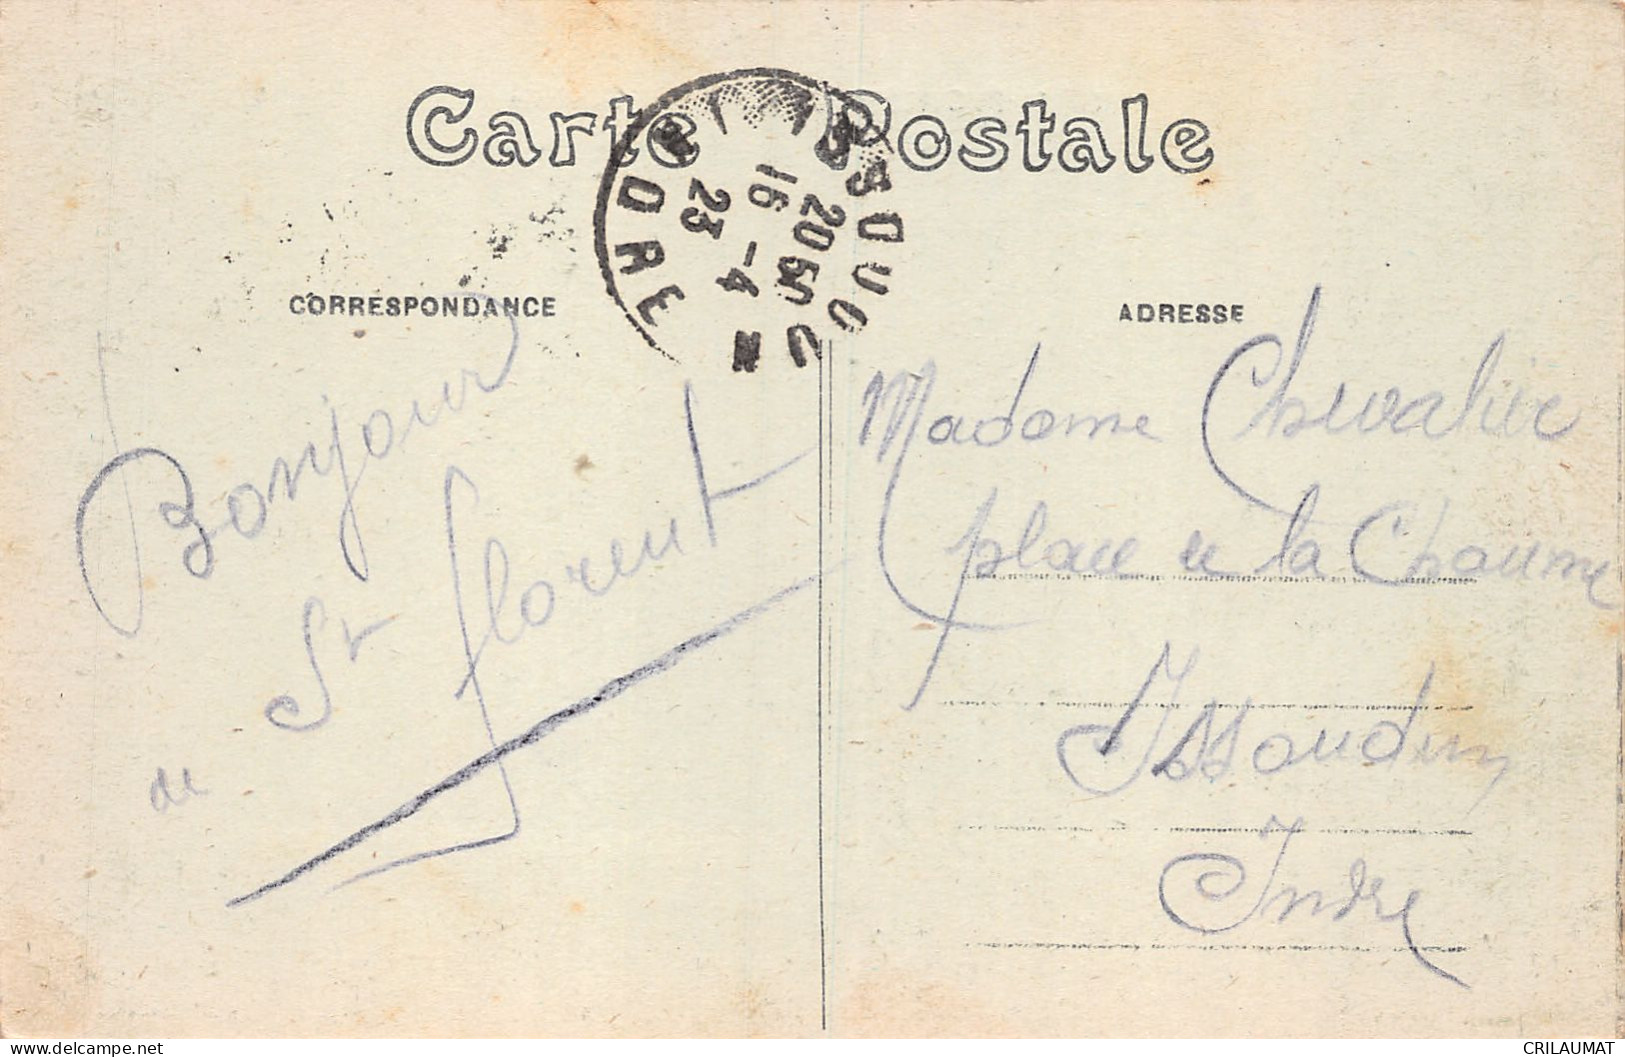 Carte Postale
ISSOUDUN
20 55
16 -4
23
INDRE
CORRESPONDANCE
ADRESSE
Bonjour
de St florent
Madame Chevalier
place de la Chaume
Issoudun
Indre
delcampe.net
CRILAUMAT